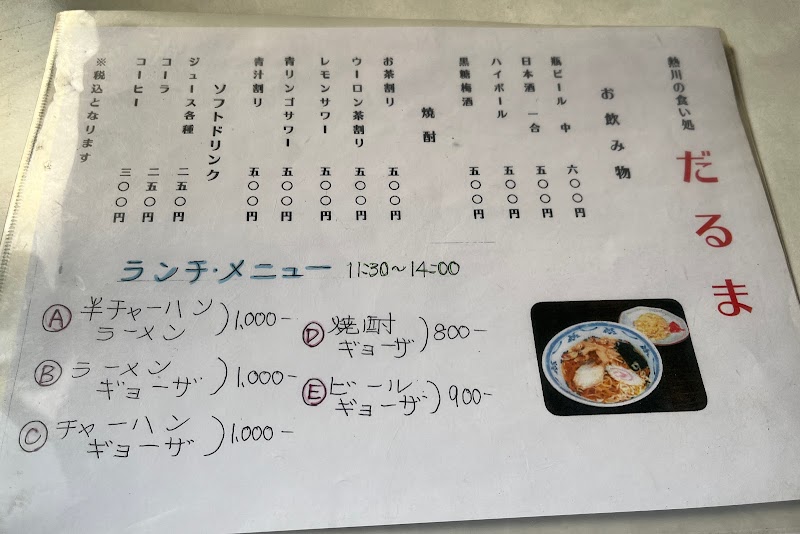 熱川の食い処
だるま
お飲み物
瓶ビール 中 六〇〇円
日本酒 一合 五〇〇円
ハイボール 五〇〇円
黒糖梅酒 五〇〇円
焼酎
お茶割り 五〇〇円
ウーロン茶割り 五〇〇円
レモンサワー 五〇〇円
青リンゴサワー 五〇〇円
青汁割り 五〇〇円
ソフトドリンク
ジュース各種 二五〇円
コーラ 二五〇円
コーヒー 三〇〇円
※税込となります
ランチ・メニュー 11:30〜14:00
Ⓐ 半チャーハン
ラーメン ) 1,000-
Ⓑ ラーメン
ギョーザ ) 1,000-
Ⓒ チャーハン
ギョーザ ) 1,000-
Ⓓ 焼酎
ギョーザ ) 800-
Ⓔ ビール
ギョーザ ) 900-